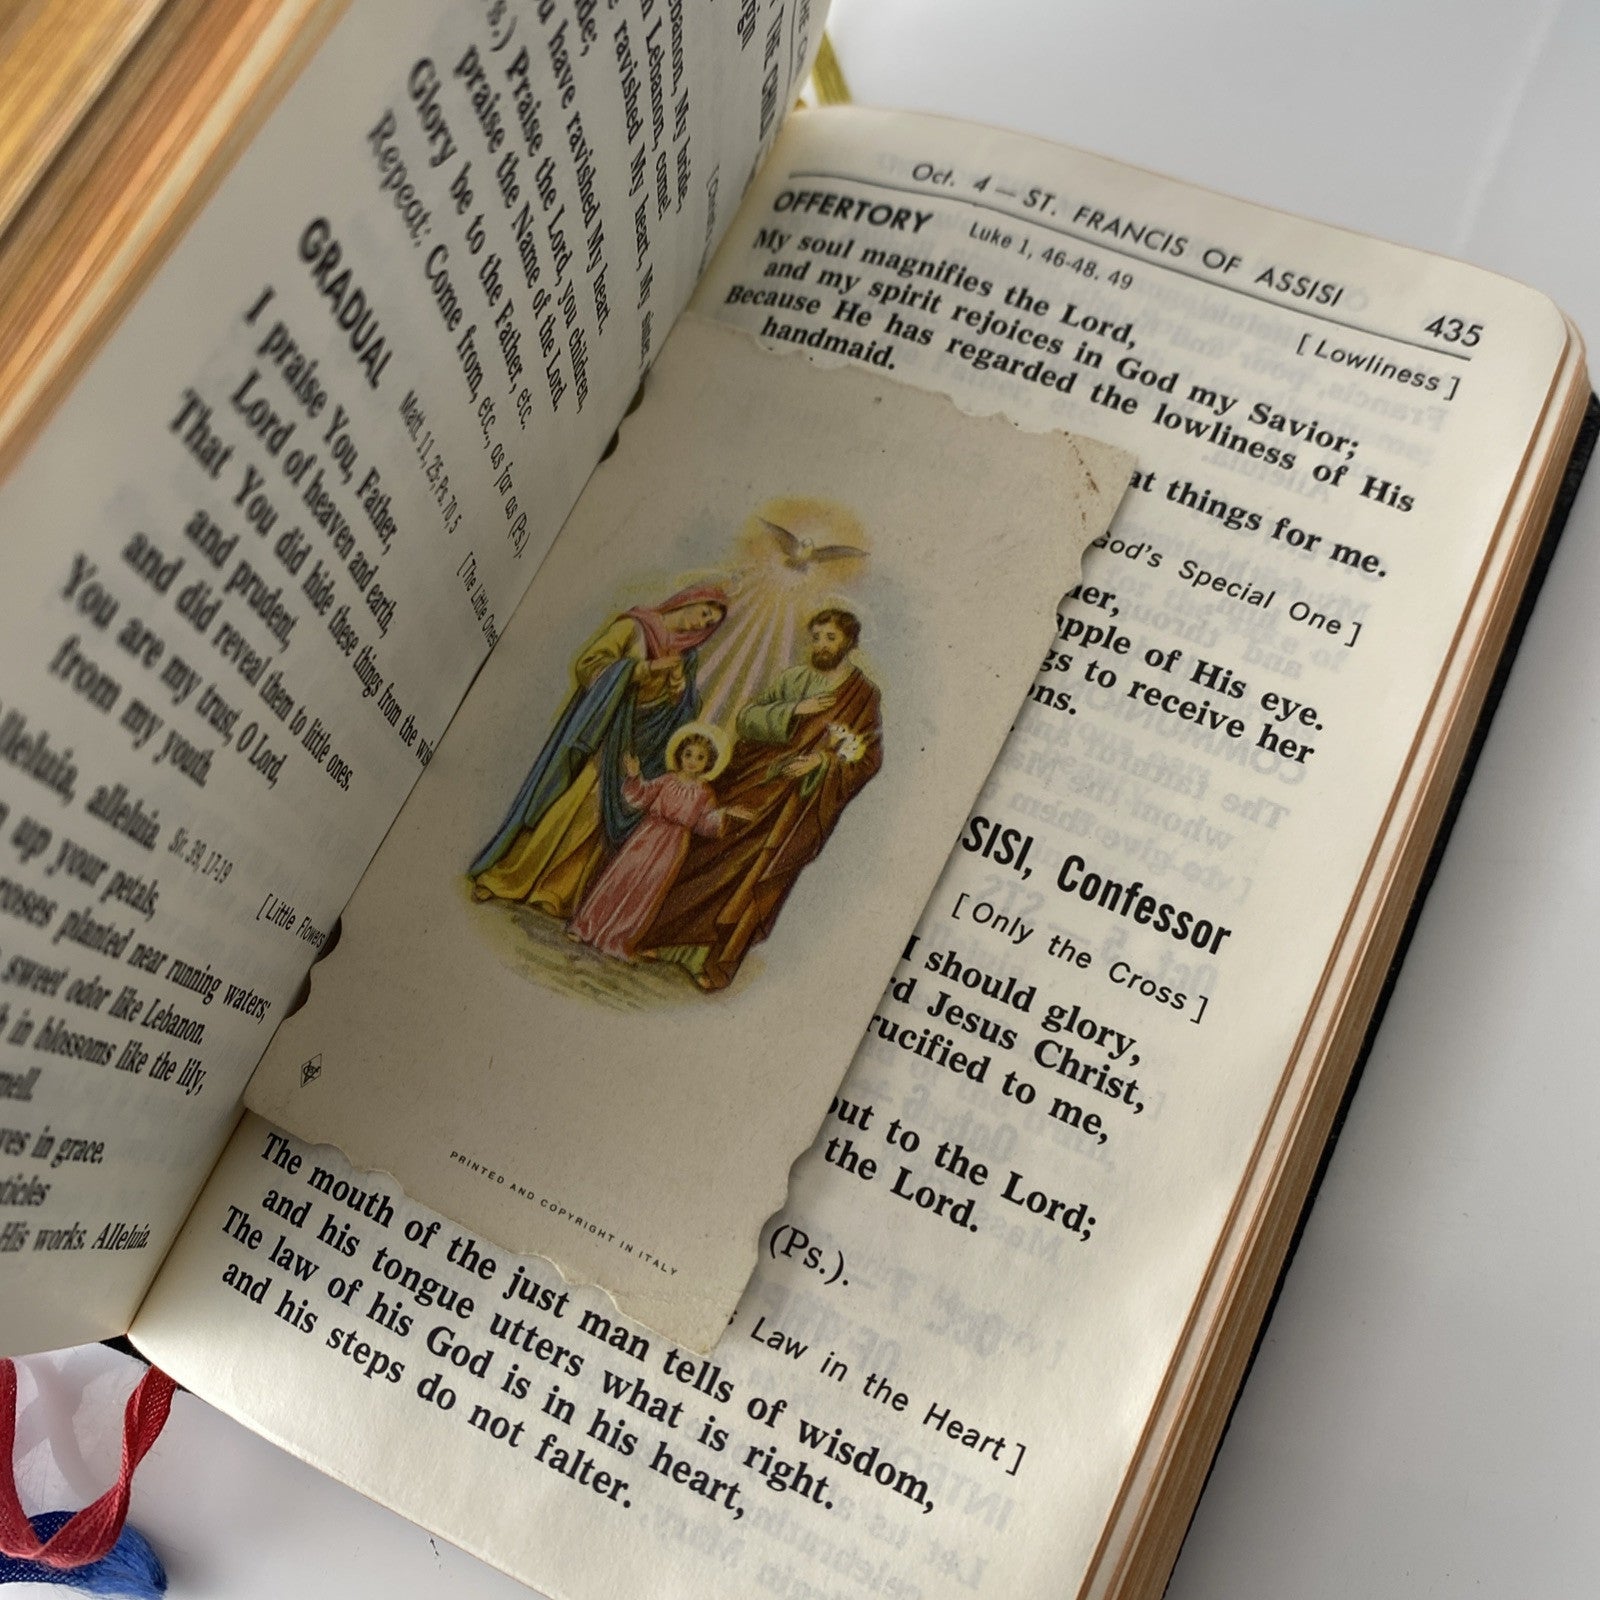 THE CHILD
ebanon, My bride,
n Lebanon, come!
e ravished My heart, My sister,
ide;
ou have ravished My heart.
s.) Praise the Lord, you children,
praise the Name of the Lord.
Glory be to the Father, etc.
Repeat: Come from, etc., as far as (Ps.).
GRADUAL Matt. 11, 25; Ps. 70, 5 [The Little Ones
I praise You, Father,
Lord of heaven and earth,
That You did hide these things from the wis
and prudent,
and did reveal them to little ones.
You are my trust, O Lord,
from my youth.
lleluia, alleluia. Sir. 39, 17-19 [Little Flowers
up your petals,
roses planted near running waters;
sweet odor like Lebanon.
h in blossoms like the lily,
mell.
ves in grace.
ticles
His works. Alleluia.
Oct. 4 — ST. FRANCIS OF ASSISI 435
OFFERTORY Luke 1, 46-48. 49 [Lowliness]
My soul magnifies the Lord,
and my spirit rejoices in God my Savior;
Because He has regarded the lowliness of His
handmaid.
at things for me.
God's Special One]
her,
apple of His eye.
gs to receive her
ons.
SISI, Confessor
[Only the Cross]
I should glory,
rd Jesus Christ,
rucified to me,
out to the Lord;
the Lord.
(Ps.).
Law in the Heart]
The mouth of the just man tells of wisdom,
and his tongue utters what is right.
The law of his God is in his heart,
and his steps do not falter.
PRINTED AND COPYRIGHT IN ITALY